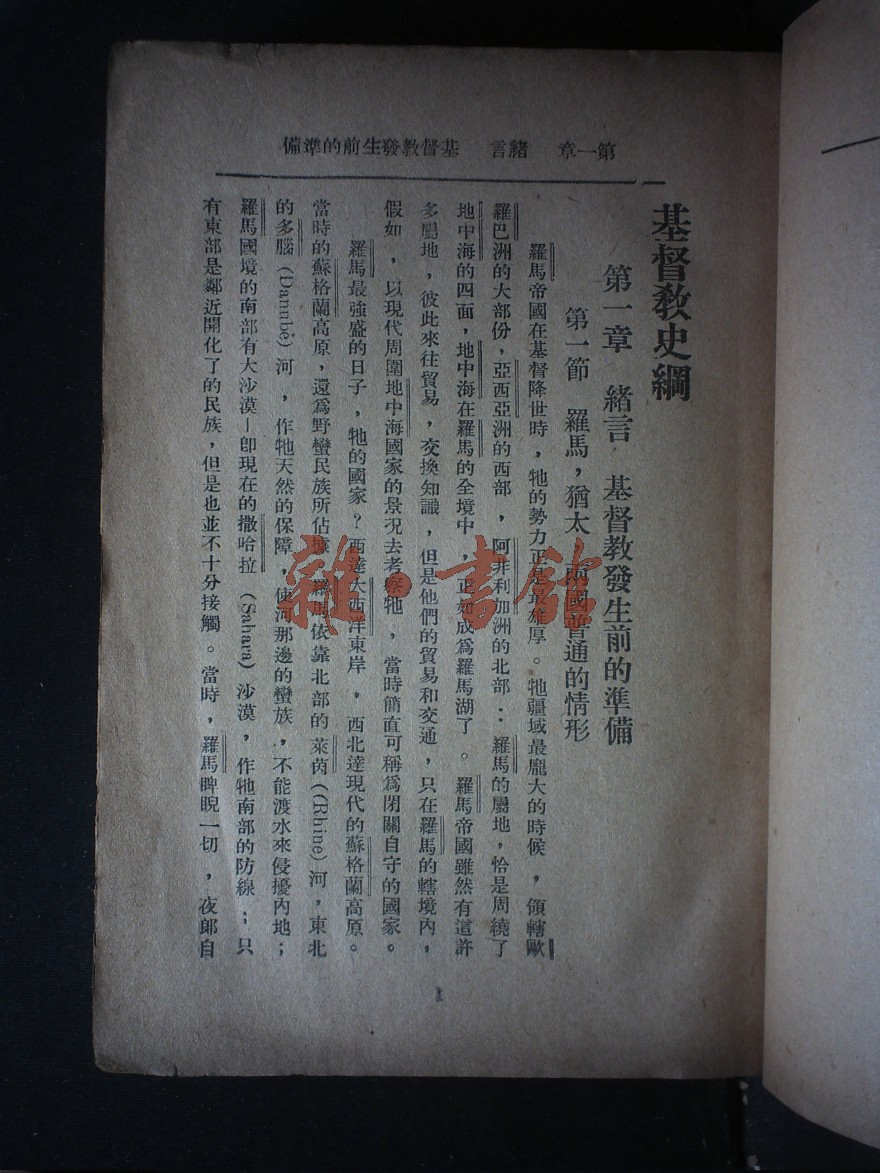 第一章 緒言 基督教發生前的準備
基督教史綱
第一章 緒言 基督教發生前的準備
第一節 羅馬，猶太，兩國普通的情形
羅馬帝國在基督降世時，牠的勢力正是最雄厚。牠疆域最龐大的時候，領轄歐
羅巴洲的大部份，亞西亞洲的西部，阿非利加洲的北部：羅馬的屬地，恰是周繞了
地中海的四面，地中海在羅馬的全境中，正如成爲羅馬湖了。羅馬帝國雖然有這許
多屬地，彼此來往貿易，交換知識，但是他們的貿易和交通，只在羅馬的轄境內，
假如，以現代周圍地中海國家的景況去考察牠，當時簡直可稱爲閉關自守的國家。
羅馬最強盛的日子，牠的國家？西達大西洋東岸，西北達現代的蘇格蘭高原。
當時的蘇格蘭高原，還爲野蠻民族所佔據，羅馬依靠北部的萊茵((Rhine)河，東北
的多腦(Dannbè)河，作牠天然的保障，使河那邊的蠻族，不能渡水來侵擾內地；
羅馬國境的南部有大沙漠—卽現在的撒哈拉(Sahara)沙漠，作牠南部的防線；只
有東部是鄰近開化了的民族，但是也並不十分接觸。當時，羅馬睥睨一切，夜郞自
1
雜·書館